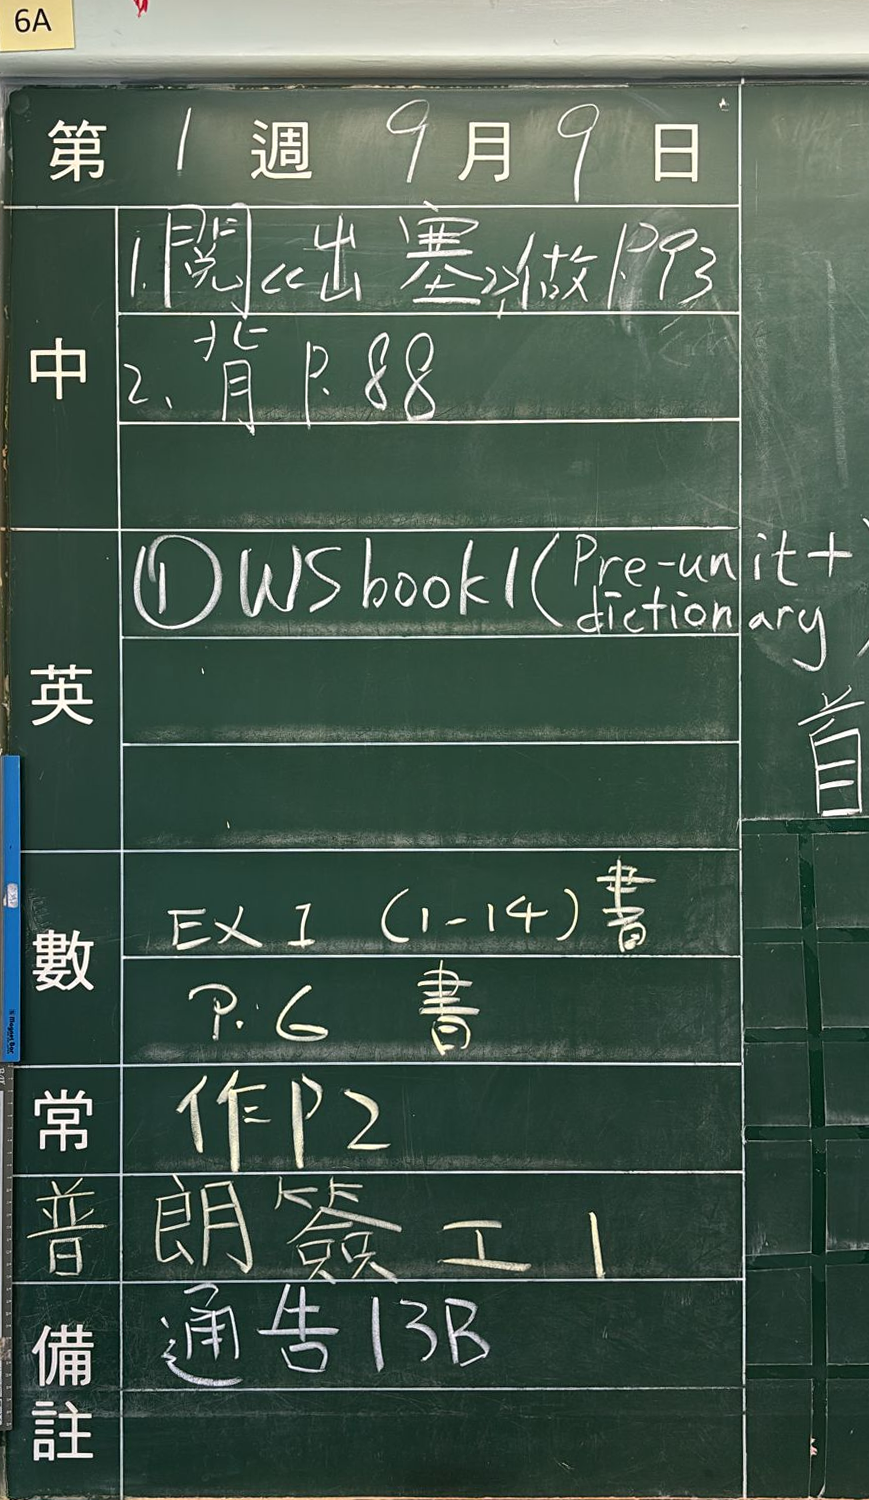 6A
第 1 週 9 月 9 日
中
1. 閱《出塞》,做P.93
2. 背 P. 88
英
① WS book 1 (Pre-unit + dictionary)
首
數
EX 1 (1-14) 書
P. 6 書
常
作 P 2
普
朗 簽 工 1
備註
通告 13B